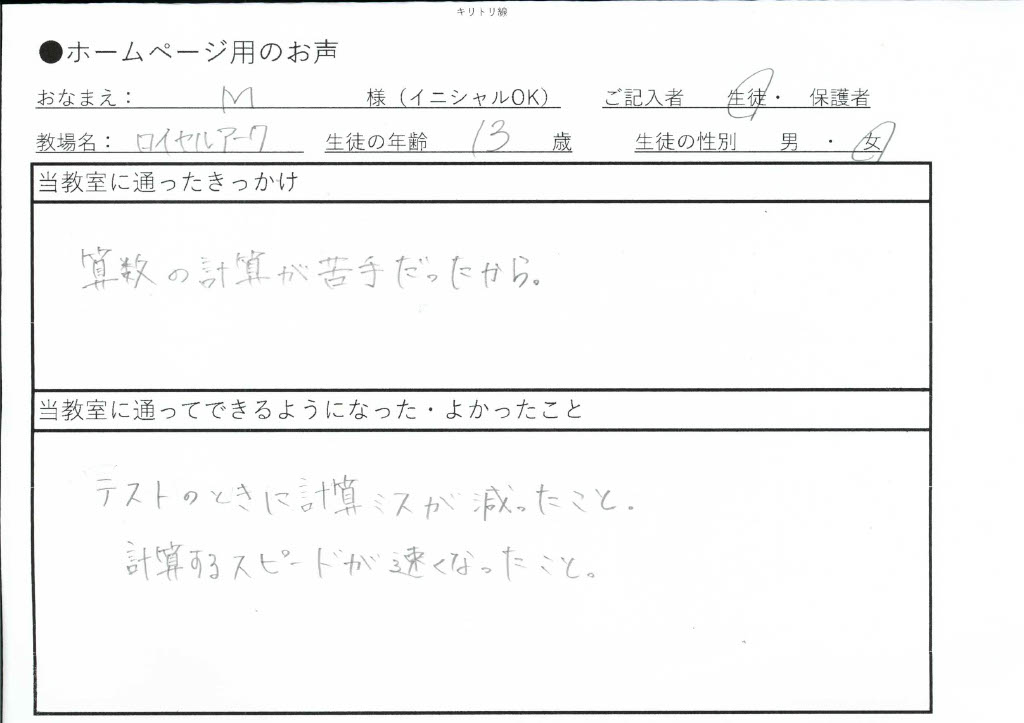 キリトリ線
●ホームページ用のお声
おなまえ： M 様（イニシャルOK） ご記入者 生徒・ 保護者
教場名： ロイヤルアーク 生徒の年齢 13 歳 生徒の性別 男 ・ 女
当教室に通ったきっかけ
算数の計算が苦手だったから。
当教室に通ってできるようになった・よかったこと
テストのときに計算ミスが減ったこと。
計算するスピードが速くなったこと。